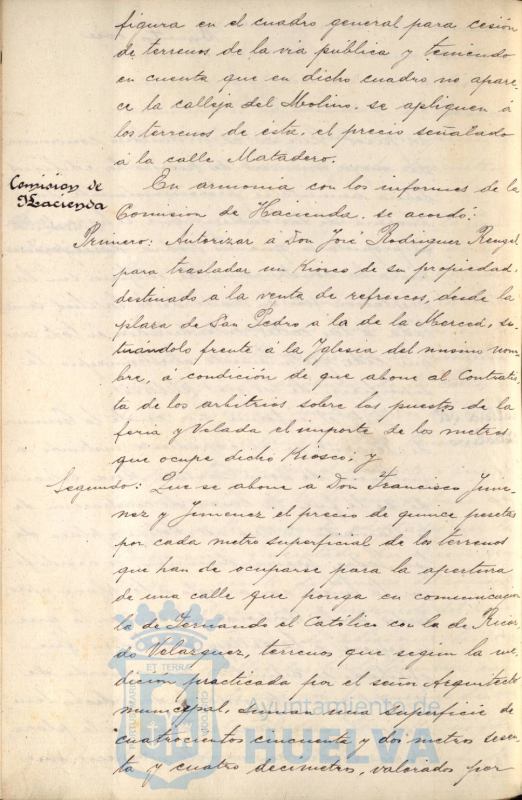 figura en el cuadro general para cesión
de terrenos de la via pública y teniendo
en cuenta que en dicho cuadro no apare-
ce la calleja del Molino, se apliquen á
los terrenos de ésta, el precio señalado
á la calle Matadero.
Comision de
Hacienda
En armonia con los informes de la
Comision de Hacienda, se acordó:
Primero: Autorizar a Don José Rodriguez Rengel
para trasladar un Kiosco de su propiedad,
destinado á la venta de refrescos, desde la
plaza de San Pedro á la de la Merced, si-
tuándolo frente á la Iglesia del mismo nom-
bre, á condición de que abone al Contratis-
ta de los arbitrios sobre los puestos de la
feria y Velada el importe de los metros
que ocupe dicho Kiosco; y
Segundo: Que se abone á Don Francisco Jime-
nez y Jimenez el precio de quince pesetas
por cada metro superficial de los terrenos
que han de ocuparse para la apertura
de una calle que ponga en comunicacion
la de Fernando el Católico con la de Ricar-
do Velazquez, terrenos que segun la me-
dicion practicada por el señor Arquitecto
municipal, suman una superficie de
cuatrocientos cincuenta y dos metros sesen-
ta y cuatro decimetros, valorados por
ET TERRA
Ayuntamiento de
HUELVA